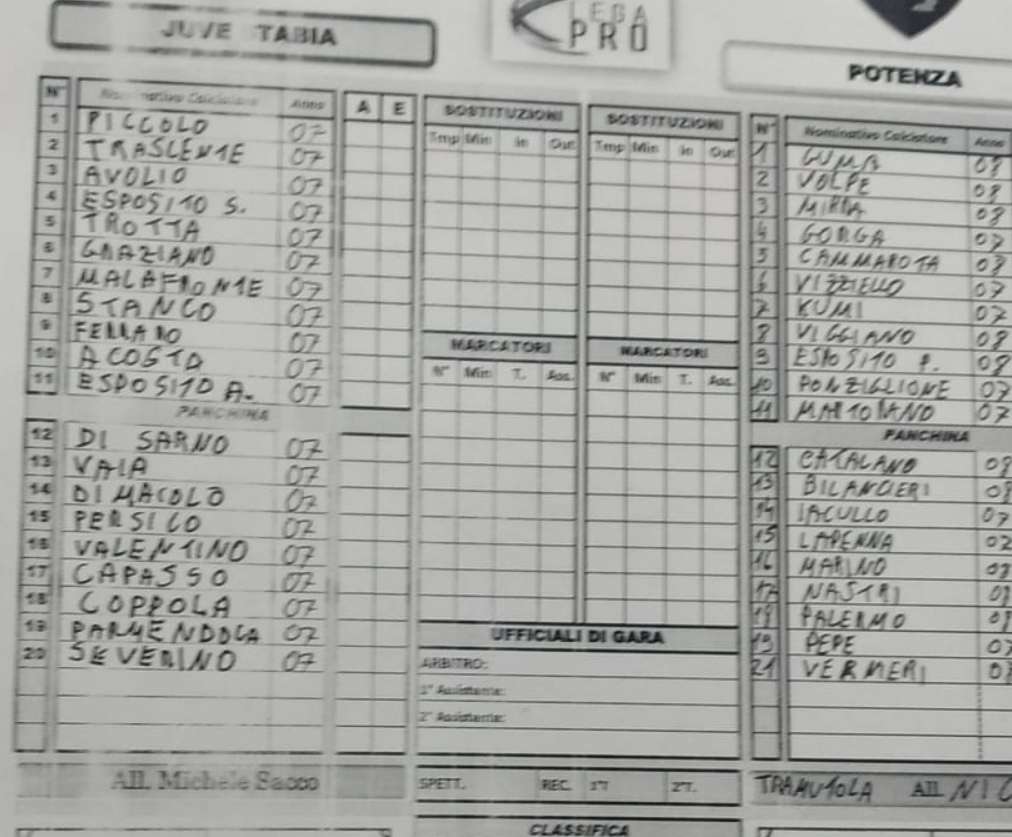 JUVE STABIA
LEGA
PRO
POTENZA
N° Nominativo Calciatore Anno A E
1 PICCOLO 07
2 TRASCENTE 07
3 AVOLIO 07
4 ESPOSITO S. 07
5 TROTTA 07
6 GRAZIANO 07
7 MALAFRONTE 07
8 STANCO 07
9 FERRARO 07
10 ACOSTA 07
11 ESPOSITO A. 07
PANCHINA
12 DI SARNO 07
13 VAIA 07
14 DI MACOLO 07
15 PERSICO 07
16 VALENTINO 07
17 CAPASSO 07
18 COPPOLA 07
19 PARMENDOLA 07
20 SEVERINO 07
All. Michele Sacco
SOSTITUZIONI SOSTITUZIONI
Tmp Min In Out Tmp Min In Out
MARCATORI MARCATORI
N° Min T. Aos. N° Min T. Aos.
UFFICIALI DI GARA
ARBITRO:
1° Assistente:
2° Assistente:
SPETT. REC. 1°T 2°T.
CLASSIFICA
N° Nominativo Calciatore Anno
1 GUMA 08
2 VOLPE 08
3 MIRRA 08
4 GORGA 07
5 CAMMAROTA 07
6 VIZZIELLO 07
7 KUMI 07
8 VIGGIANO 08
9 ESPOSITO P. 08
10 PONZIGLIONE 07
11 MARTORANO 07
PANCHINA
12 CATALANO
13 BILANCIERI
14 IACULLO 07
15 LAPENNA 07
16 MARINO
17 NASTRI
18 PALERMO
19 PEPE
21 VERNERI
TRAMUTOLA All. NIC